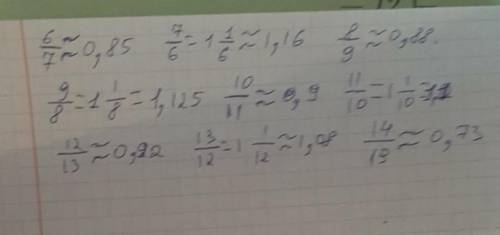 6/7 ≈ 0,85 7/6 = 1 1/6 ≈ 1,16 8/9 ≈ 0,88.
9/8 = 1 1/8 = 1,125 10/11 ≈ 0,9 11/10 = 1 1/10 = 1,1
12/13 ≈ 0,92 13/12 = 1 1/12 ≈ 1,08 14/19 ≈ 0,73